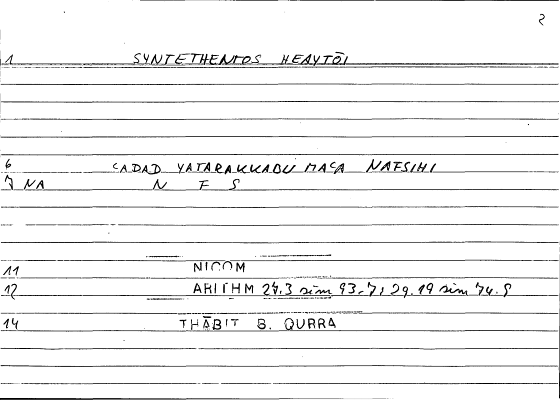 2
1 SYNTETHENTOS HEAYTŌI
6 ʕADAD YATARAKKABU MAʕA NAFSIHI
7 NA N F S
11 NICOM
12 ARITHM 27.3 sim 93.7; 29.19 sim 74.9
14 THĀBIT B. QURRA